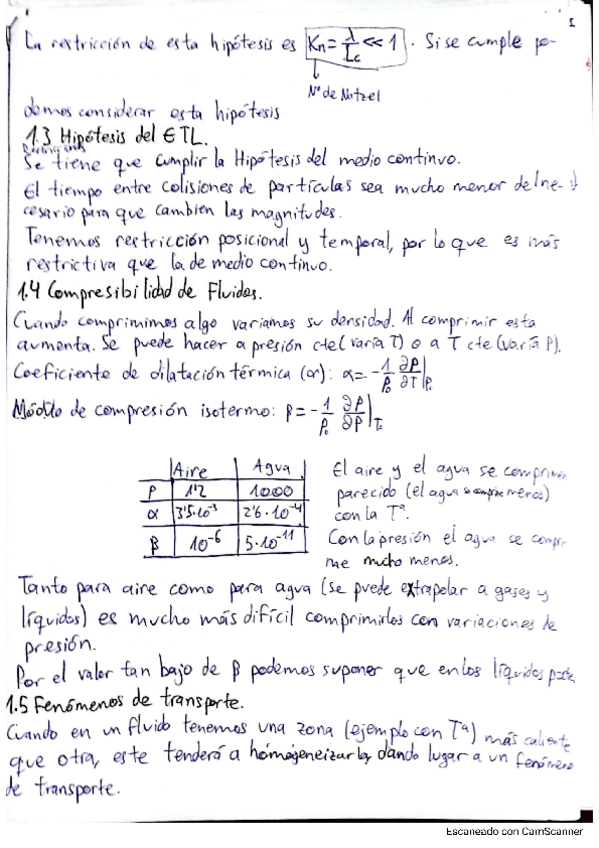 1
La restricción de esta hipótesis es Kn = λ/Lc << 1. Si se cumple po-
Nº de Notzel
demos considerar esta hipótesis
1.3 Hipótesis del ETL.
Se tiene que cumplir la Hipótesis del medio continuo.
El tiempo entre colisiones de partículas sea mucho menor del ne-
cesario para que cambien las magnitudes.
Tenemos restricción posicional y temporal, por lo que es más
restrictiva que la de medio continuo.
1.4 Compresibilidad de Fluidos.
Cuando comprimimos algo variamos su densidad. Al comprimir esta
aumenta. Se puede hacer a presión cte (varía T) o a T cte (varía P).
Coeficiente de dilatación térmica (α): α = -1/ρ₀ ∂ρ/∂T|P₀
Módulo de compresión isotermo: β = -1/ρ₀ ∂ρ/∂P|T₀
Aire Agua
ρ 1'2 1000
α 3'5·10⁻³ 2'6·10⁻⁴
β 10⁻⁶ 5·10⁻¹¹
El aire y el agua se comprimen
parecido (el agua se comprime menos)
con la Tª.
Con la presión el agua se compri-
me mucho menos.
Tanto para aire como para agua (se puede extrapolar a gases y
líquidos) es mucho más difícil comprimirlos con variaciones de
presión.
Por el valor tan bajo de β podemos suponer que en los líquidos ρ=cte
1.5 Fenómenos de transporte.
Cuando en un fluido tenemos una zona (ejemplo con Tª) más caliente
que otra, este tenderá a homogeneizarla, dando lugar a un fenómeno
de transporte.
Escaneado con CamScanner